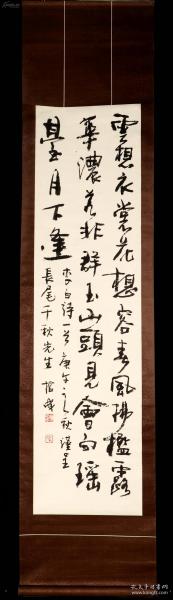 雲想衣裳花想容春風拂檻露
華濃若非群玉山頭見會向瑤
臺月下逢
李白詩一首庚午之秋謹呈
長尾千秋先生